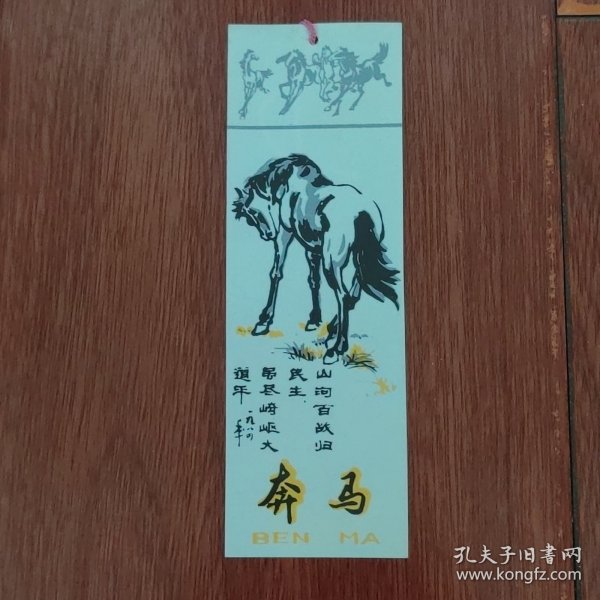 山河百战归
民主,
尽崎岖大
道平
一九八六年
奔马
BEN MA
孔夫子旧书网
www.kongfz.com